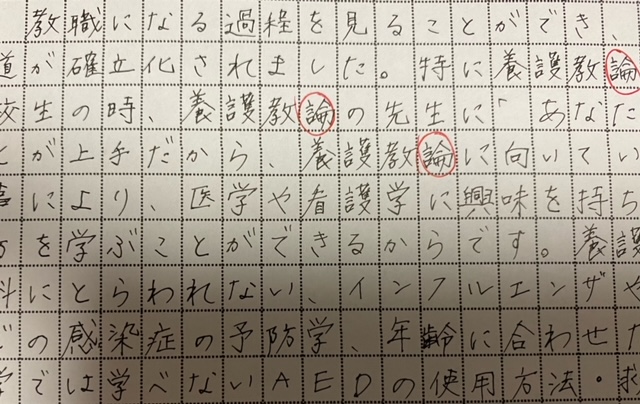 教職になる過程を見ることができ、
道が確立化されました。特に養護教論
校生の時、養護教論の先生に「あなた
とが上手だから、養護教論に向いてい
事により、医学や看護学に興味を持ち
を学ぶことができるからです。養護
科にとらわれない、インフルエンザや
どの感染症の予防学、年齢に合わせた
学では学べないAEDの使用方法・求